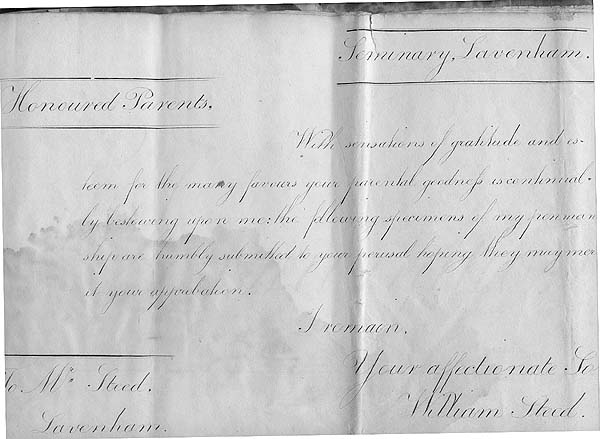 Seminary, Lavenham.
Honoured Parents.
With sensations of gratitude and es-
teem for the many favours your parental goodness is continual-
ly bestowing upon me: the following specimens of my penman
ship are humbly submitted to your perusal hoping they may mer
it your approbation.
I remain.
Your affectionate So
To Mr. Steed.
William Steed.
Lavenham.